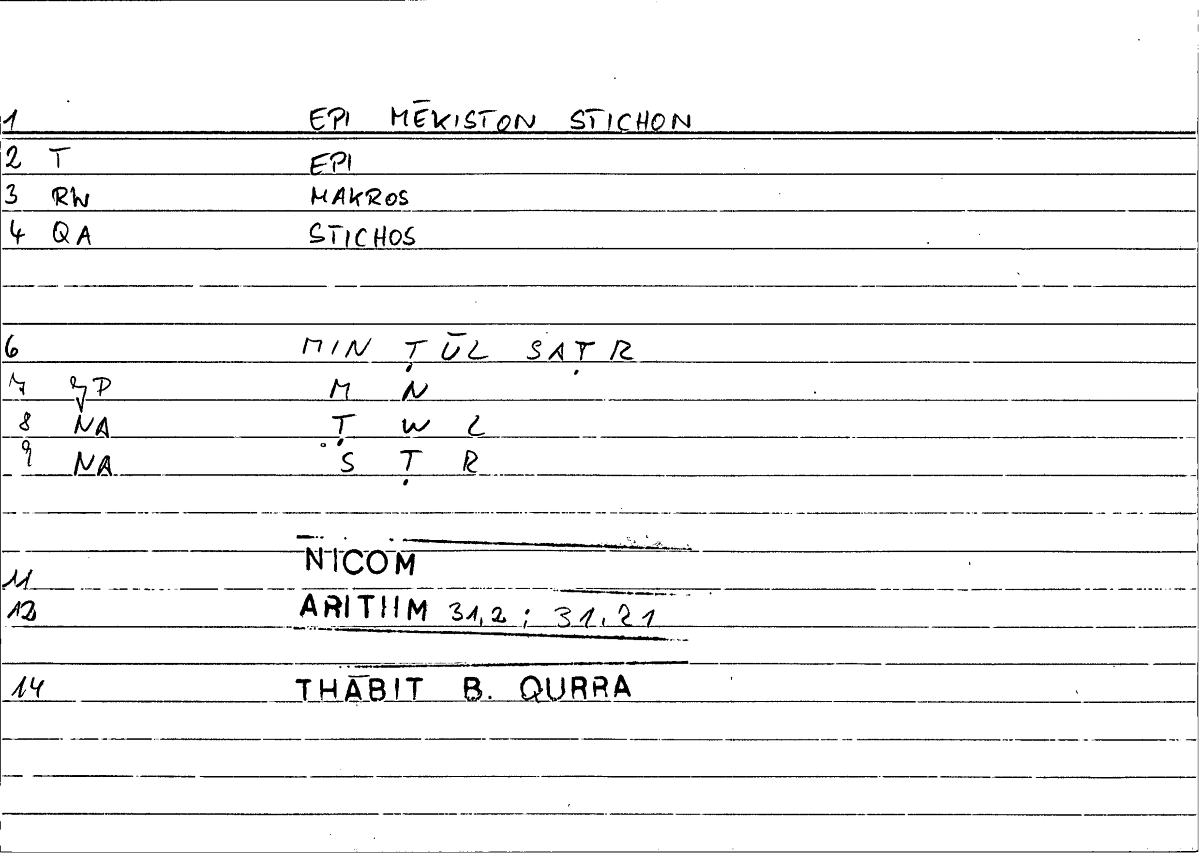 1 EPI MĒKISTON STICHON
2 T EPI
3 RW MAKROS
4 QA STICHOS
6 MIN ṬŪL SAṬR
7 P M N
8 NA Ṭ W L
9 NA S Ṭ R
11 NICOM
12 ARITHM 31,2 ; 31,21
14 THĀBIT B. QURRA